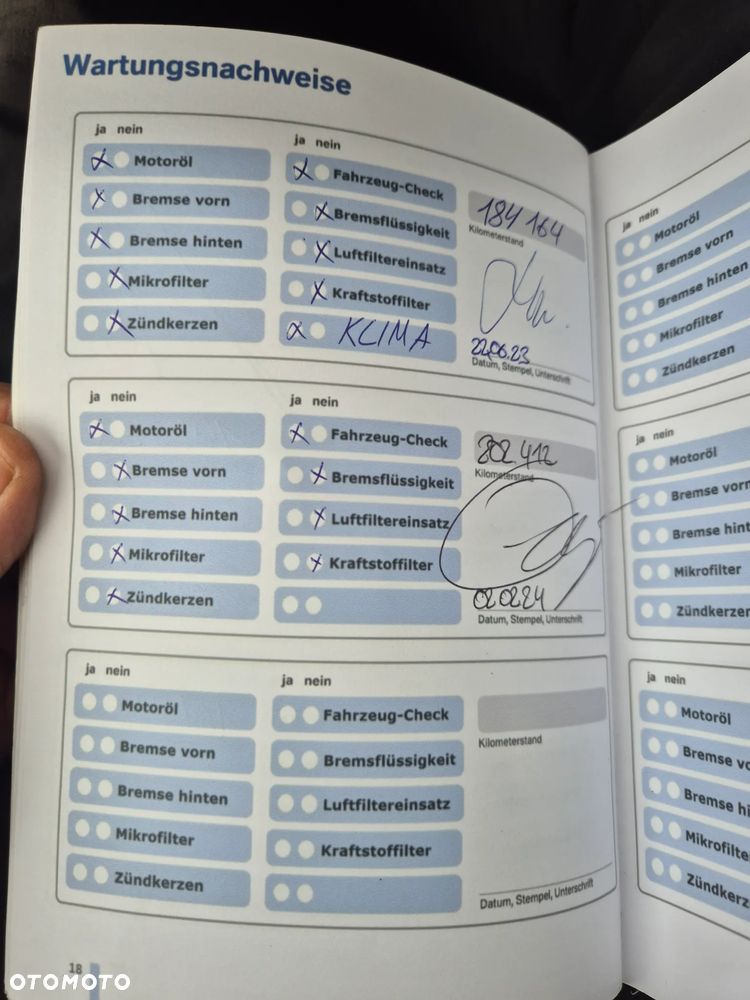 Wartungsnachweise
ja nein
Motoröl
Bremse vorn
Bremse hinten
Mikrofilter
Zündkerzen
ja nein
Fahrzeug-Check
Bremsflüssigkeit
Luftfiltereinsatz
Kraftstoffilter
KLIMA
184 164
Kilometerstand
22.06.23
Datum, Stempel, Unterschrift
ja nein
Motoröl
Bremse vorn
Bremse hinten
Mikrofilter
Zündkerzen
ja nein
Fahrzeug-Check
Bremsflüssigkeit
Luftfiltereinsatz
Kraftstoffilter
202.412
Kilometerstand
020224
Datum, Stempel, Unterschrift
ja nein
Motoröl
Bremse vorn
Bremse hinten
Mikrofilter
Zündkerzen
ja nein
Fahrzeug-Check
Bremsflüssigkeit
Luftfiltereinsatz
Kraftstoffilter
Kilometerstand
Datum, Stempel, Unterschrift
18
ja nein
Motoröl
Bremse vorn
Bremse hinten
Mikrofilter
Zündkerzen
ja nein
Motoröl
Bremse vorn
Bremse hint
Mikrofilter
Zündkerzen
ja nein
Motoröl
Bremse vo
Bremse hi
Mikrofilte
Zündkerz
OTOMOTO